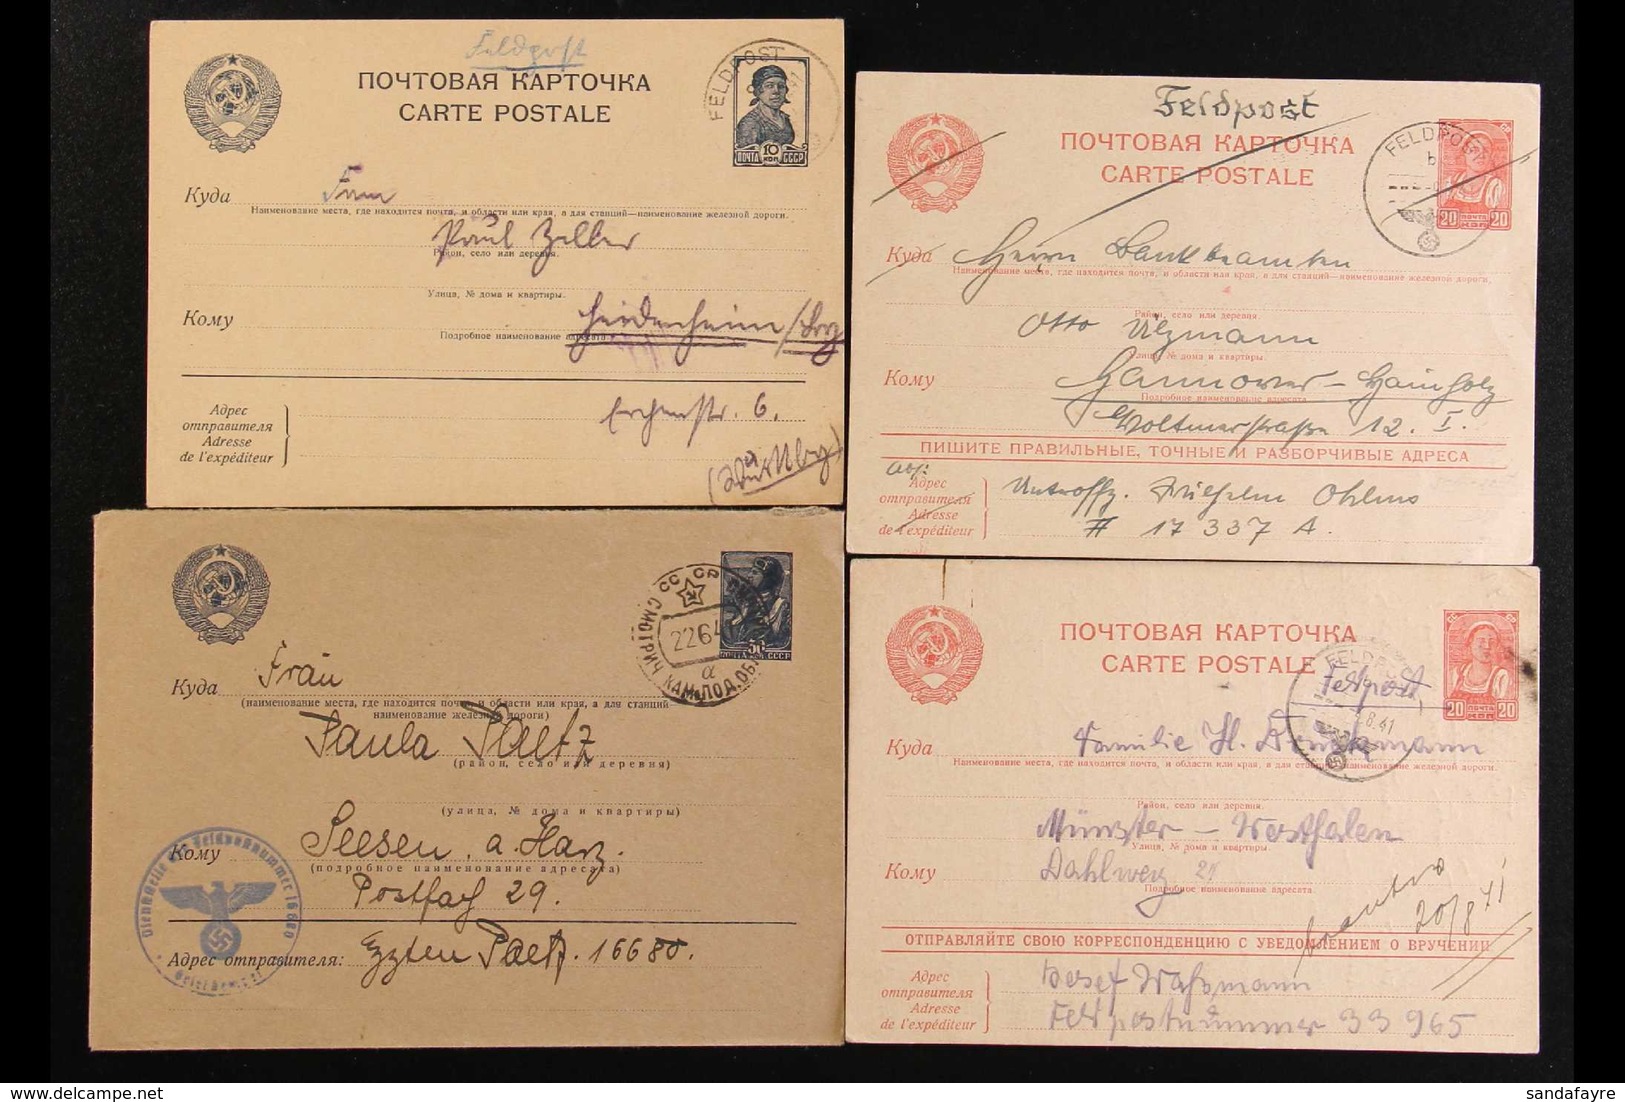 Feldpost
ПОЧТОВАЯ КАРТОЧКА
CARTE POSTALE
FELDPOST
10 КОП
ПОЧТА СССР
Куда
Наименование места, где находится почта, и области или края, а для станций—наименование железной дороги.
Paul Zeller
Район, село или деревня.
Улица, № дома и квартиры.
Кому
Heidenheim /Brz
Подробное наименование адресата
Erchenstr. 6.
Адрес
отправителя
Adresse
de l'expéditeur
Feldpost
ПОЧТОВАЯ КАРТОЧКА
CARTE POSTALE
FELDPOST
b
20 ПОЧТА КОП 20
Куда
Herrn Bankbeamten
Наименование места, где находится почта, и области или края, а для станций—наименование железной дороги.
Район, село или деревня.
Otto Ulzmann
Улица, № дома и квартиры.
Кому
Hannover - Hainholz
Подробное наименование адресата
Voltmerstraße 12. I.
ПИШИТЕ ПРАВИЛЬНЫЕ, ТОЧНЫЕ И РАЗБОРЧИВЫЕ АДРЕСА
Адрес
отправителя
Adresse
de l'expéditeur
Untroffz. Wilhelm Ohlms
17 337 A.
СССР
22 6 4
СМОТРИЧ КАМ.ПОД.ОБЛ
α
50
ПОЧТА СССР
Куда
Fräu
(наименование места, где находится почта, и области или края, а для станций—
наименование железной дороги)
Paula Paetz
(район, село или деревня)
(улица, № дома и квартиры)
Кому
Seesen a. Harz
(подробное наименование адресата)
Postfach 29.
Адрес отправителя:
Paetz. 16680.
Dienststelle Feldpostnummer 16680
ПОЧТОВАЯ КАРТОЧКА
CARTE POSTALE
FELDPOST
Feldpost
.8.41
20 ПОЧТА КОП 20
Куда
Familie H.
Наименование места, где находится почта, и области или края, а для станций—наименование железной дороги.
Район, село или деревня.
Münster - Westfalen
Улица, № дома и квартиры.
Кому
Dahlweg 21
Подробное наименование адресата.
20/8 41
ОТПРАВЛЯЙТЕ СВОЮ КОРРЕСПОНДЕНЦИЮ С УВЕДОМЛЕНИЕМ О ВРУЧЕНИИ
Адрес
отправителя
Adresse
de l'expéditeur
Josef Waßmann
Feldpostnummer 33 965
sandafayre